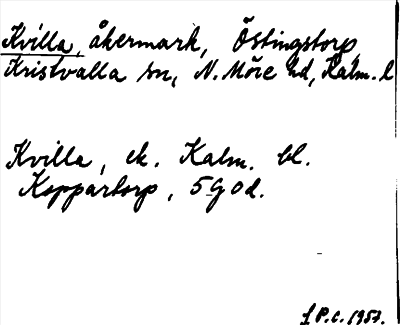 Kvilla, åkermark, Östingstorp,
Kristvalla sn, N. Möre hd, Kalm. l
Kvilla, ek. Kalm. bl.
Koppartorp, 5 G o d.
P.C. 1957.